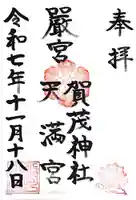 奉拝
賀茂神社
嚴宮
天満宮
令和七年十一月十八日